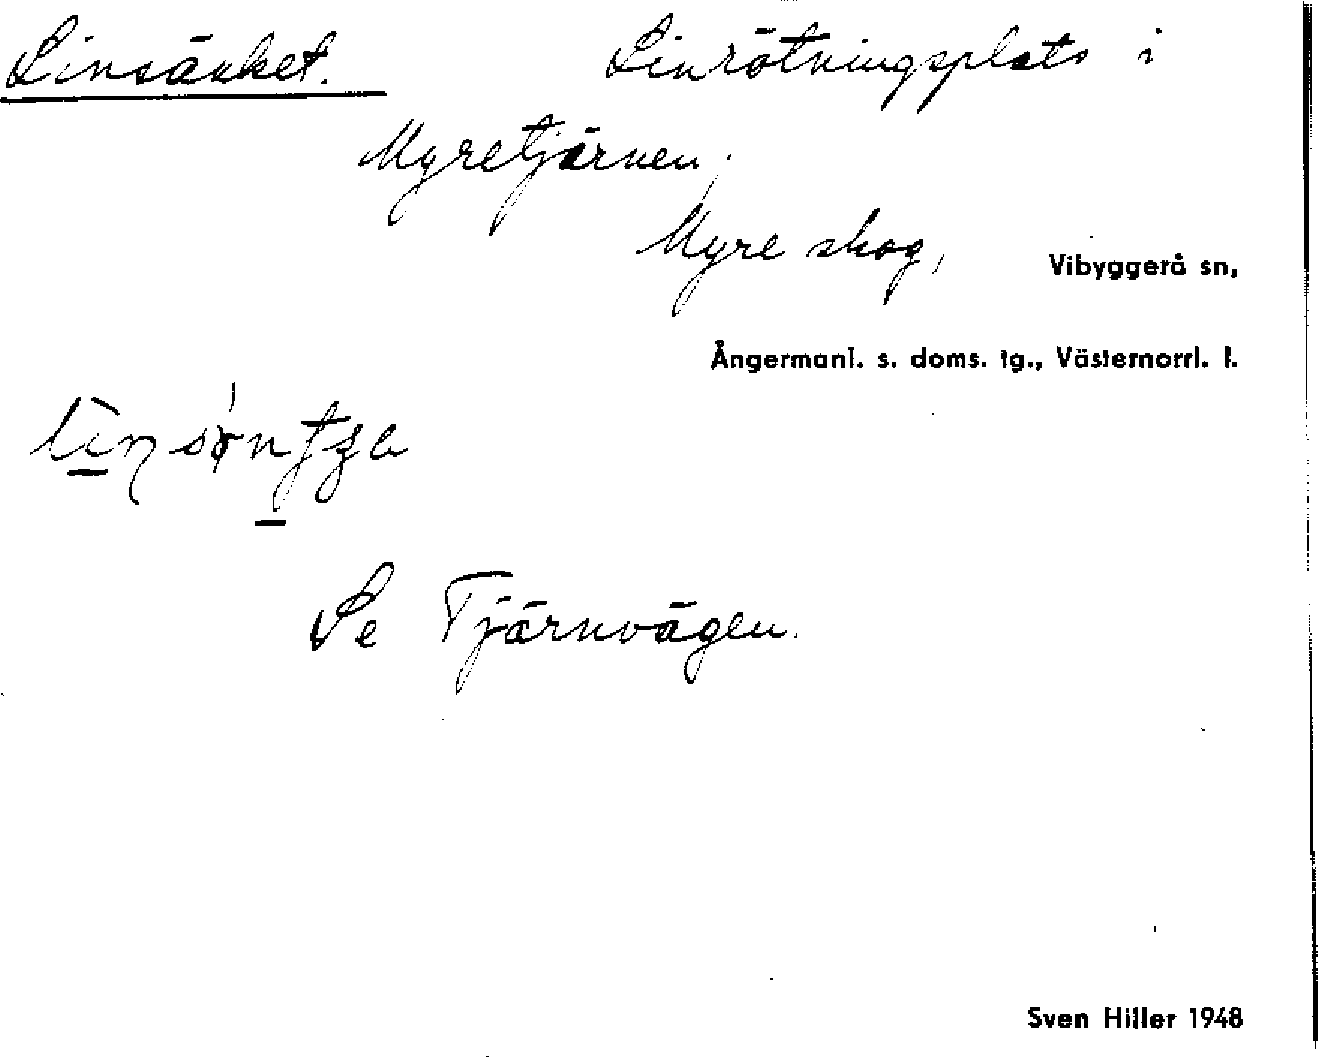 Linsänket. Linrötningsplats i
Myretjärnen,
Myre skog, Vibyggerå sn,
Ångermanl. s. doms. tg., Västernorrl. l.
Se Tjärnvägen.
Sven Hiller 1948